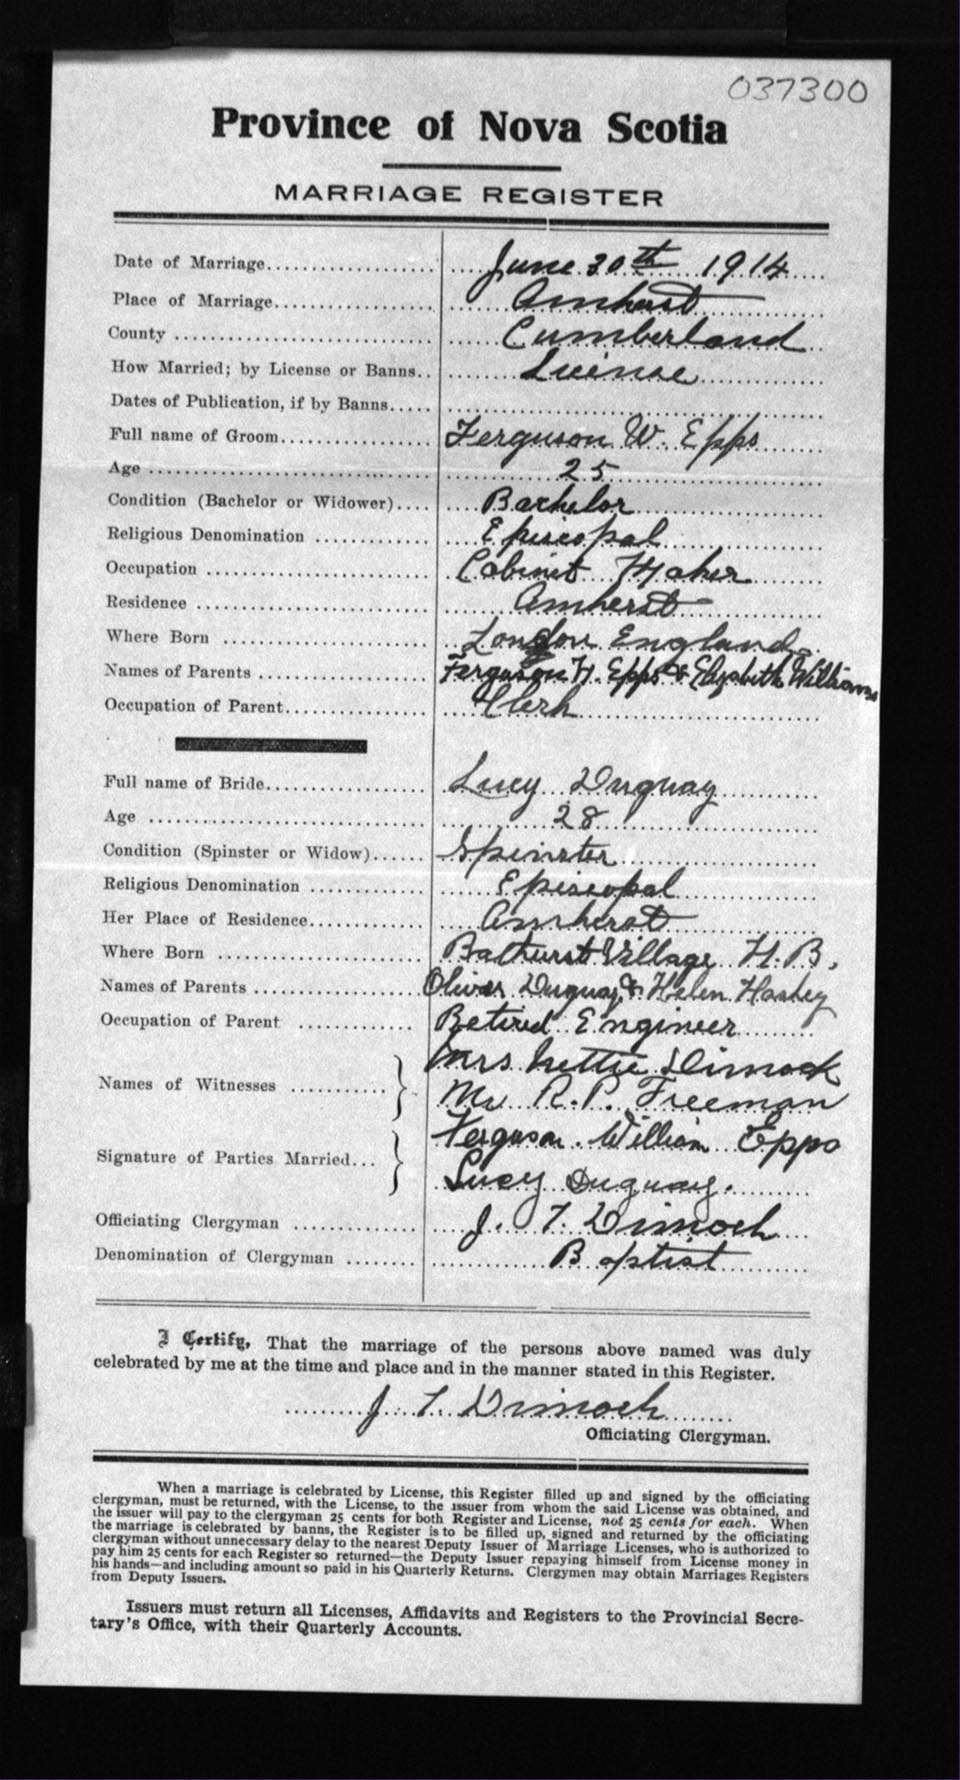 037300
Province of Nova Scotia
MARRIAGE REGISTER
Date of Marriage.................... June 30th 1914
Place of Marriage................... Amherst
County .............................. Cumberland
How Married; by License or Banns.. License
Dates of Publication, if by Banns.....
Full name of Groom................ Ferguson W. Epps
Age ................................. 25
Condition (Bachelor or Widower).... Bachelor
Religious Denomination ............. Episcopal
Occupation ......................... Cabinet Maker
Residence .......................... Amherst
Where Born ........................ London England
Names of Parents ................... Ferguson H. Epps & Elizabeth Williams
Occupation of Parent................ Clerk
Full name of Bride.................. Lucy Duguay
Age ................................. 28
Condition (Spinster or Widow)...... Spinster
Religious Denomination ............. Episcopal
Her Place of Residence............. Amherst
Where Born ........................ Bathurst Village N.B.
Names of Parents ................... Oliver Duguay & Helen
Occupation of Parent ............. Retired Engineer
Names of Witnesses ............. Mrs Nettie Dimock
Mr R. P. Freeman
Signature of Parties Married... Ferguson William Epps
Lucy Duguay.
Officiating Clergyman ............. J. T. Dimock
Denomination of Clergyman ........ Baptist
I Certify, That the marriage of the persons above named was duly
celebrated by me at the time and place and in the manner stated in this Register.
J. T. Dimock
Officiating Clergyman.
When a marriage is celebrated by License, this Register filled up and signed by the officiating
clergyman, must be returned, with the License, to the issuer from whom the said License was obtained, and
the issuer will pay to the clergyman 25 cents for both Register and License, not 25 cents for each. When
the marriage is celebrated by banns, the Register is to be filled up, signed and returned by the officiating
clergyman without unnecessary delay to the nearest Deputy Issuer of Marriage Licenses, who is authorized to
pay him 25 cents for each Register so returned—the Deputy Issuer repaying himself from License money in
his hands—and including amount so paid in his Quarterly Returns. Clergymen may obtain Marriages Registers
from Deputy Issuers.
Issuers must return all Licenses, Affidavits and Registers to the Provincial Secre-
tary's Office, with their Quarterly Accounts.